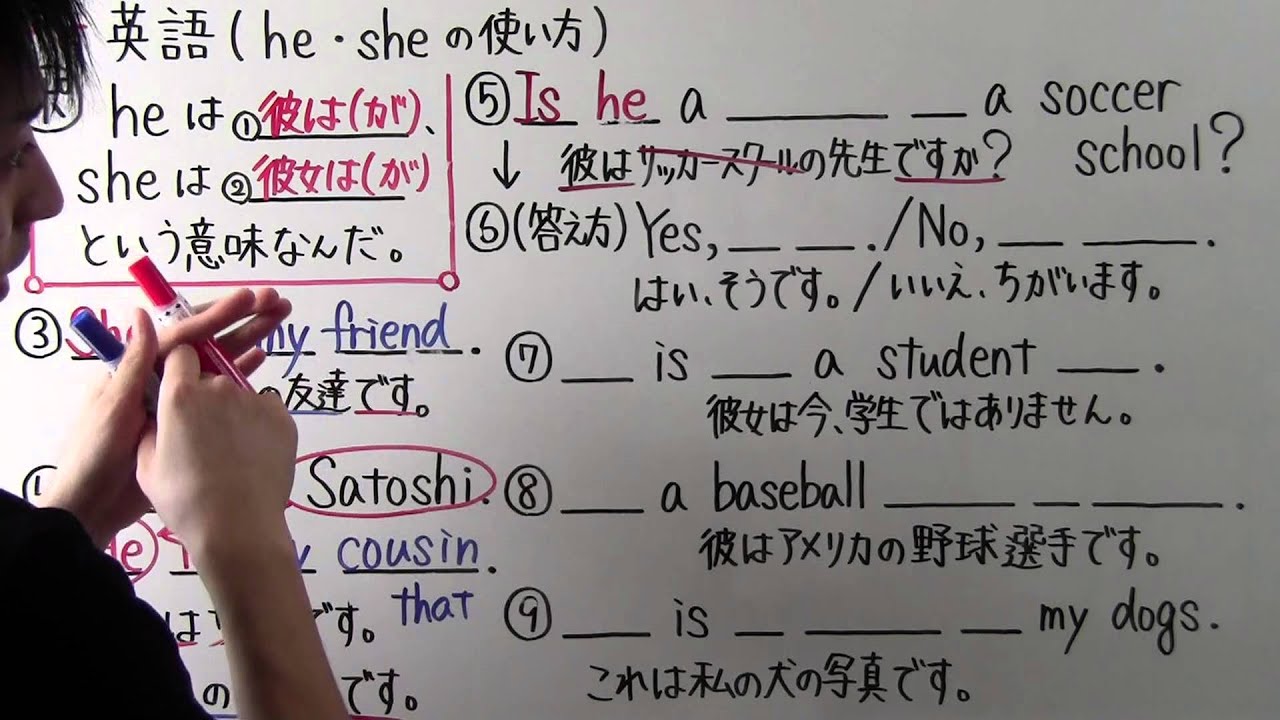 英語(he・sheの使い方)
heは①彼は(が)、
sheは②彼女は(が)
という意味なんだ。
③She my friend.
の友達です。
Satoshi.
He cousin.
です。that
の です。
⑤Is he a ___ __ a soccer
school?
↓ 彼はサッカースクールの先生ですか?
⑥(答え方)Yes, __ __ ./No, __ ___ .
はい、そうです。/いいえ、ちがいます。
⑦ __ is __ a student __ .
彼女は今、学生ではありません。
⑧ __ a baseball ___ __ ___ .
彼はアメリカの野球選手です。
⑨ __ is __ ___ __ my dogs.
これは私の犬の写真です。